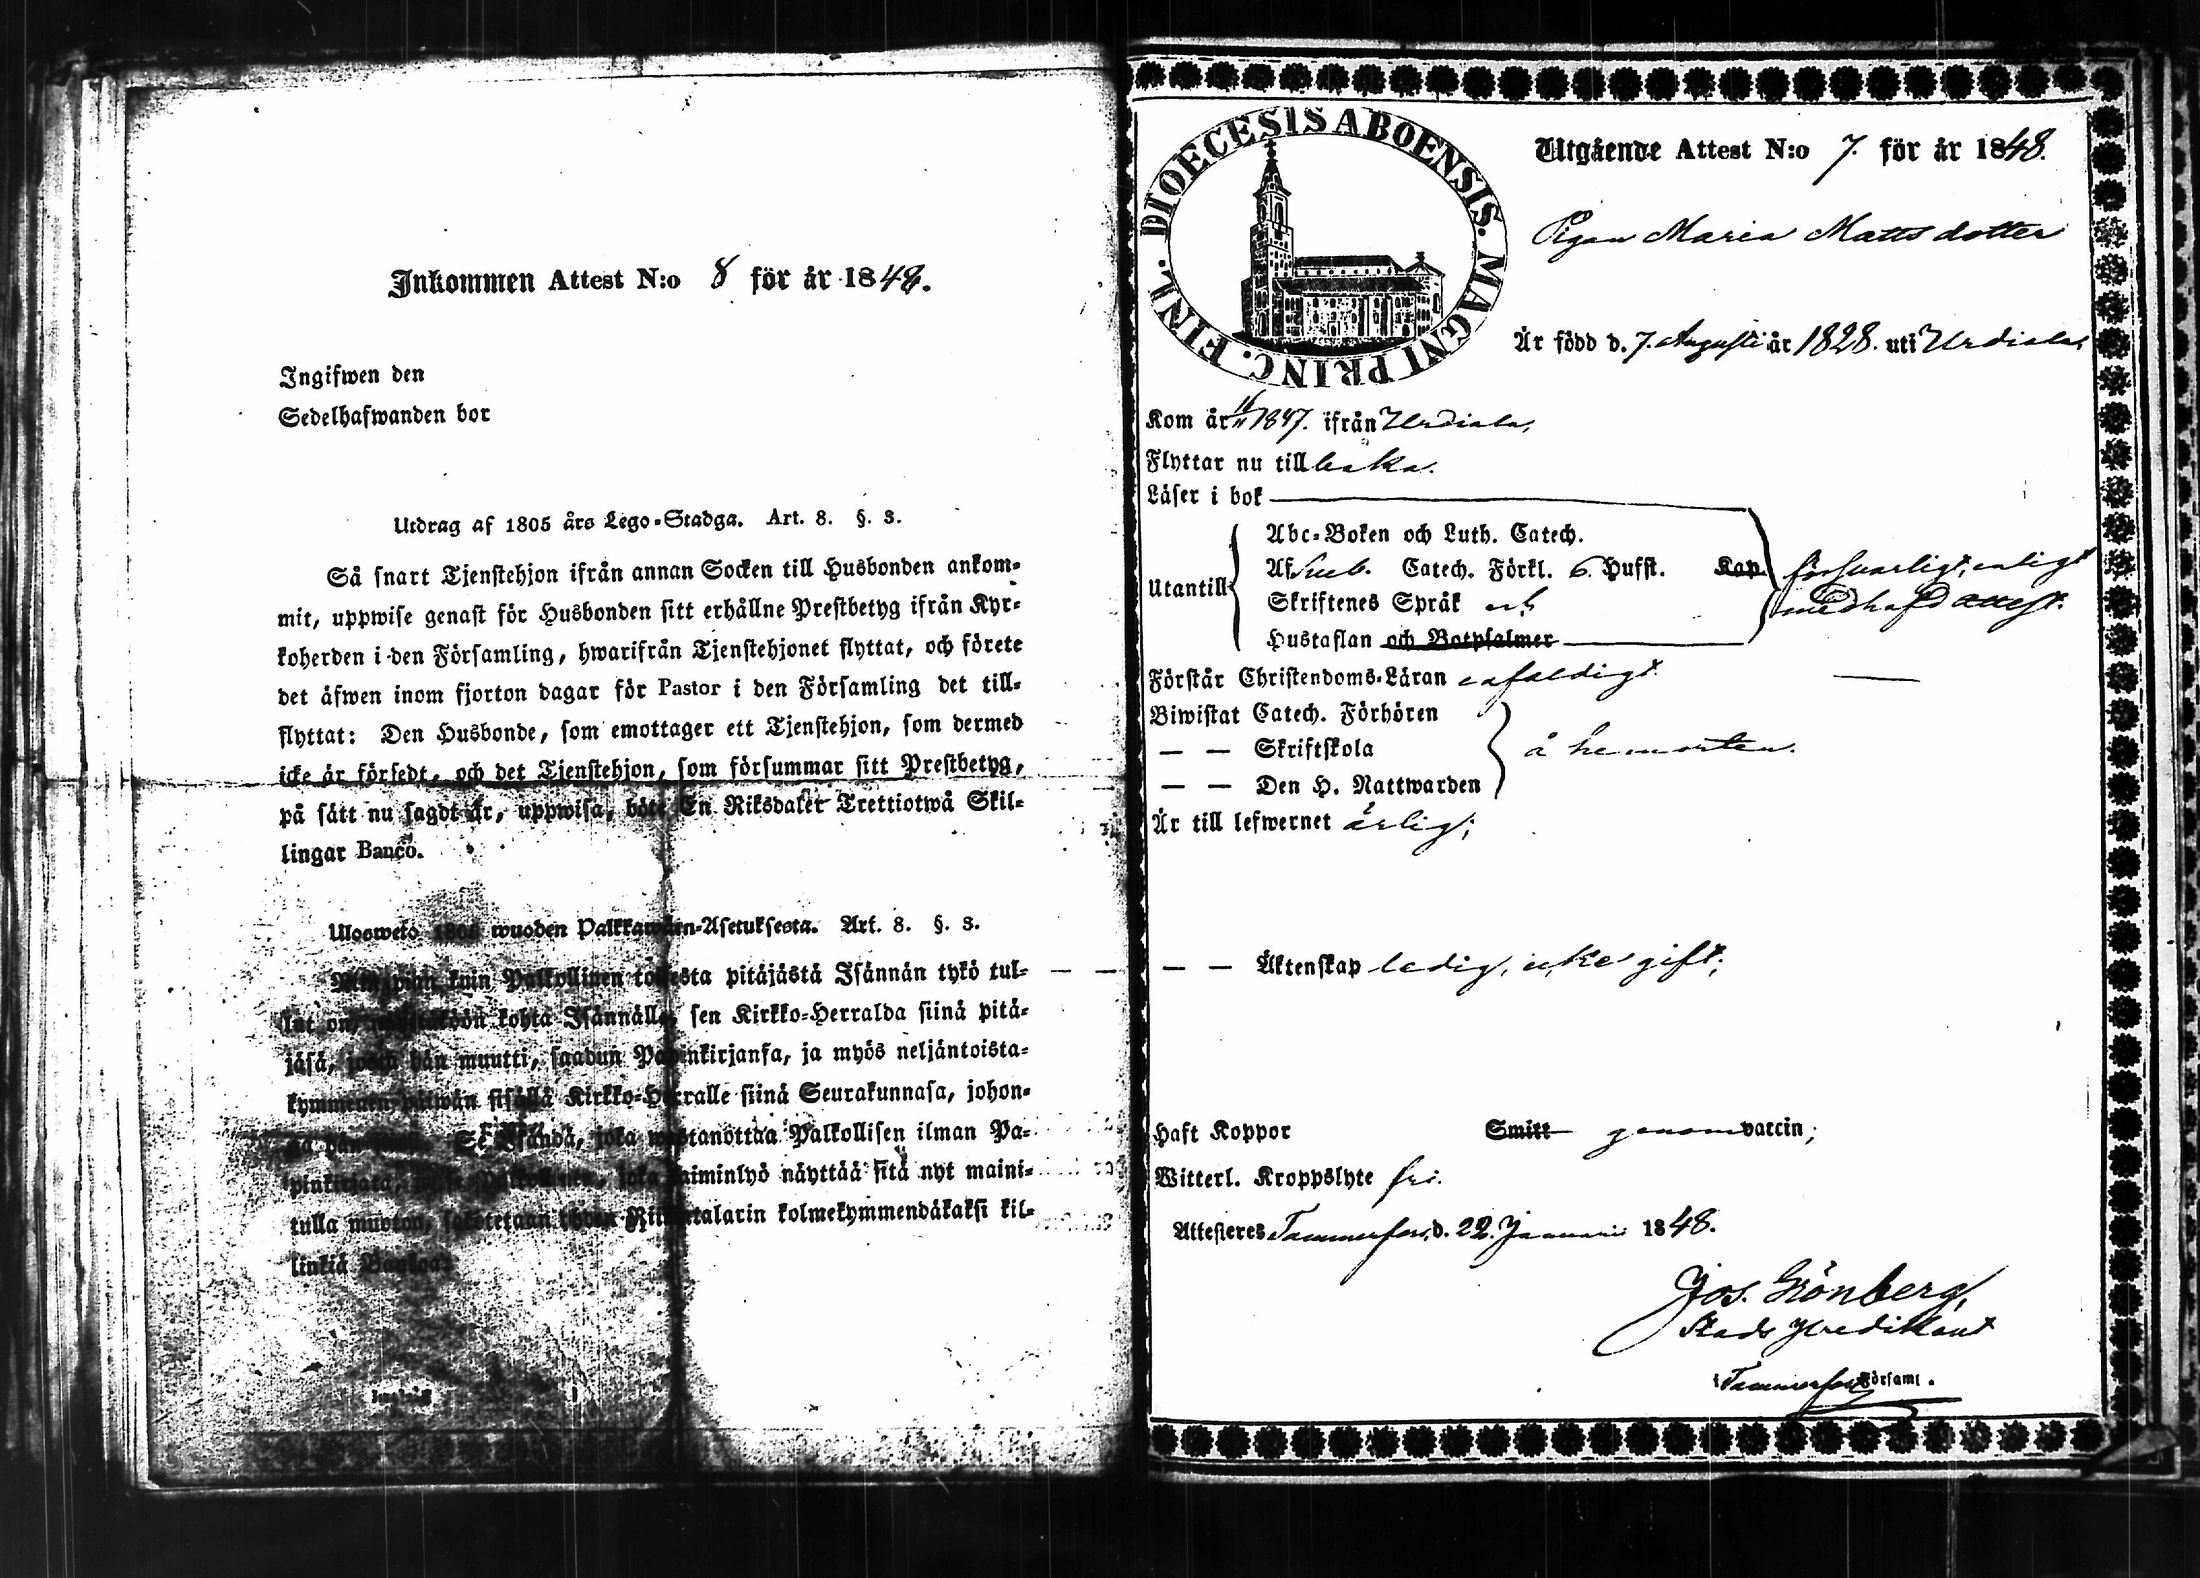 Inkommen Attest N:o 8 för år 1848.
Ingifwen den
Sedelhafwanden bor
Utdrag af 1805 års Lego-Stadga. Art. 8. §. 3.
Så snart Tjenstehjon ifrån annan Socken till Husbonden ankom-
mit, uppwise genast för Husbonden sitt erhållne Prestbetyg ifrån Kyr-
koherden i den Församling, hwarifrån Tjenstehjonet flyttat, och förete
det äfwen inom fjorton dagar för Pastor i den Församling det till-
flyttat: Den Husbonde, som emottager ett Tjenstehjon, som dermed
icke är försedt, och det Tjenstehjon, som försummar sitt Prestbetyg,
på sätt nu sagdt är, uppwisa, böte En Riksdaler Trettiotwå Skil-
lingar Banco.
Ulosweto wuoden Palkkawäen-Asetuksesta. Art. 8. §. 3.
kuin Palkollinen toisesta pitäjästä Isännän tykö tul-
lut on, kohta Isännälle, sen Kirkko-Herralda siinä pitä-
jäsä, josta hän muutti, saadun Papinkirjansa, ja myös neljäntoista-
kymmenen päiwän sisällä Kirkko-Herralle siinä Seurakunnasa, johon-
Se Isändä, joka wastanottaa Palkollisen ilman Pa-
pinkirjata, joka laiminlyö näyttää sitä nyt maini-
tulla muoton, kolmekymmendäkaksi kil-
linkiä
DIOECESIS ABOENSIS. MAGNI PRINC. FINL.
Utgående Attest N:o 7. för år 1848.
Pigan Maria Mattsdotter
Är född d. 7. Augusti år 1828. uti Urdiala,
Kom år 1847. ifrån Urdiala,
Flyttar nu tillbaka.
Läser i bok
Abc-Boken och Luth. Catech.
Utantill
Af Sweb. Catech. Förkl. 6. Hufst. Kap. försvarligt, enligt
Skriftenes Språk och medhafd attest.
Hustaflan och Botpsalmer
Förstår Christendoms-Läran enfaldigt
Biwistat Catech. Förhören
— — Skriftskola å hemorten.
— — Den H. Nattwarden
Är till lefwernet ärlig;
— — Äktenskap ledig, icke gift;
Haft Koppor Smitt genom vaccin;
Witterl. Kroppslyte fri.
Attesteres Tammerfors, d. 22. Januarii 1848.
Jos. Grönberg,
Stads Predikant
i Tammerfors Församl.